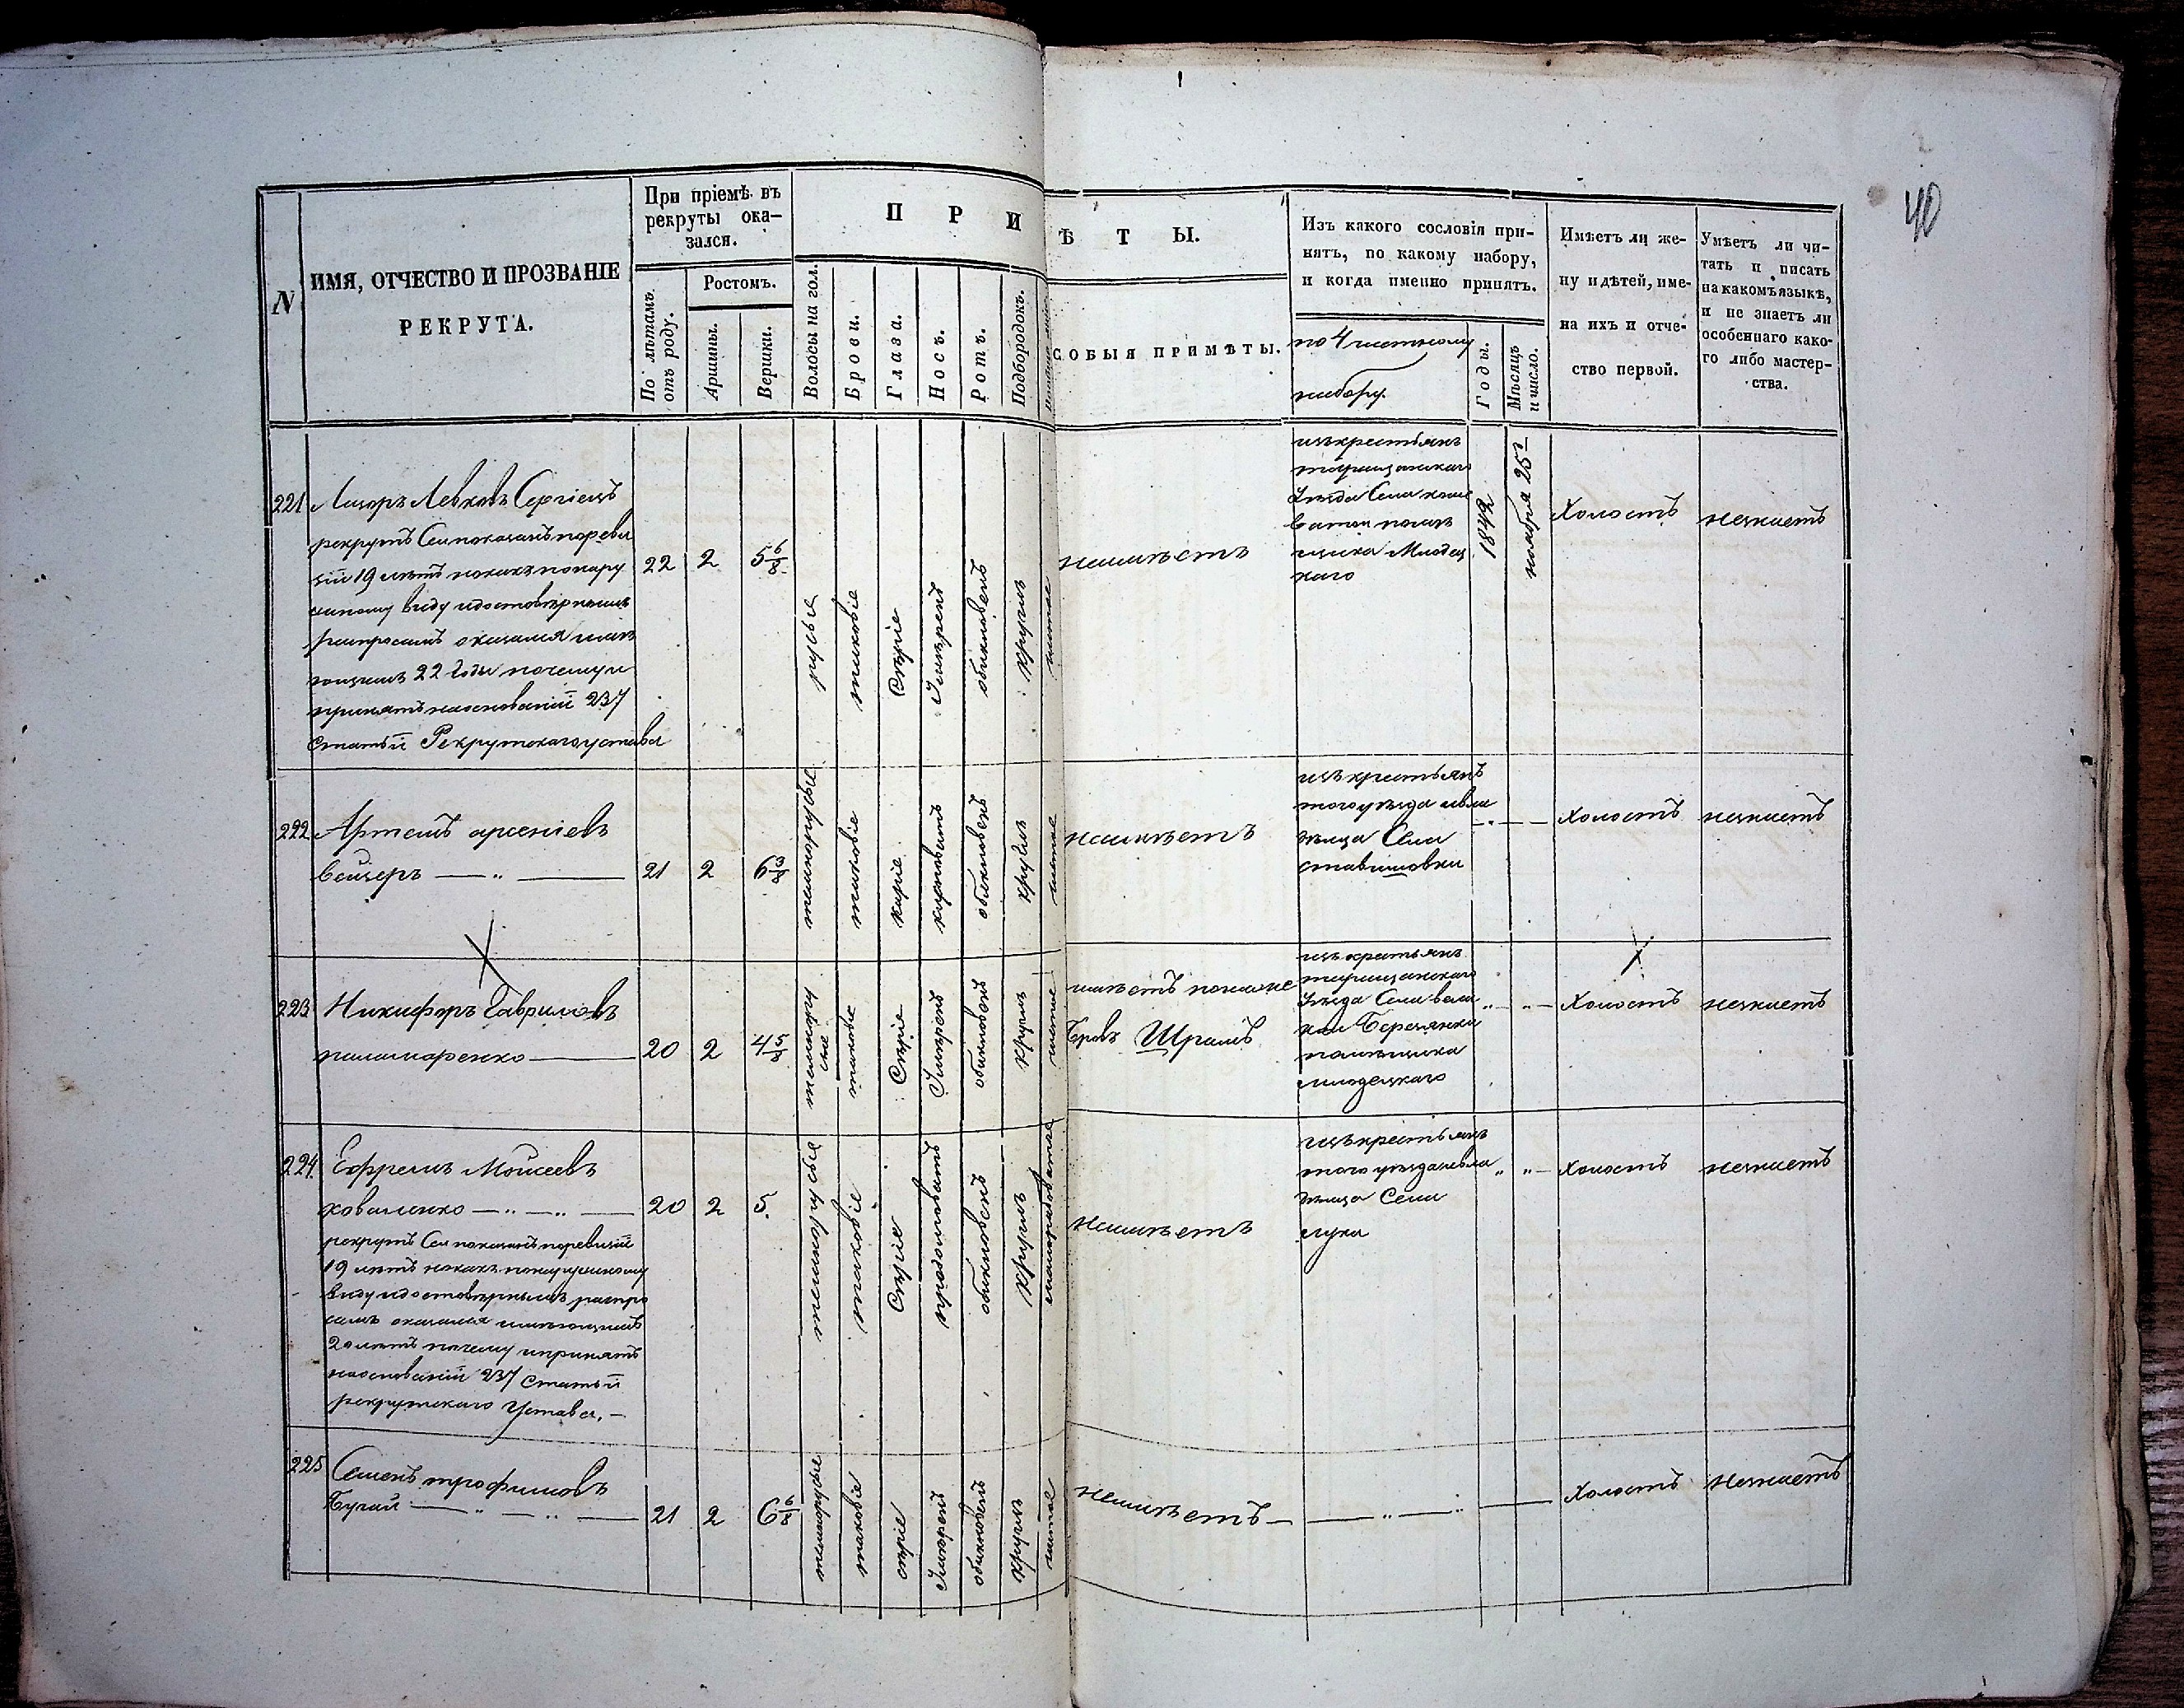 40
N
ИМЯ, ОТЧЕСТВО И ПРОЗВАНІЕ
РЕКРУТА.
При пріемѣ въ
рекруты ока-
зался.
По лѣтамъ
отъ роду.
Ростомъ.
Аршины.
Вершки.
П Р И
Волосы на гол.
Брови.
Глаза.
Носъ.
Ротъ.
Подбородокъ.
Ѣ Т Ы.
СОБЫЯ ПРИМѢТЫ.
Изъ какого сословія при-
нятъ, по какому набору,
и когда именно принятъ.
по 4 частному
набору.
Годы.
Мѣсяцъ
и число.
Имѣетъ ли же-
ну и дѣтей, име-
на ихъ и отче-
ство первой.
Умѣетъ ли чи-
тать и писать
на какомъ языкѣ,
и не знаетъ ли
особеннаго како-
го либо мастер-
ства.
221
Лазоръ Левковъ Сергіецъ
рекрутъ Сей показанъ по реви
зіи 19 лѣтъ но какъ по нару
жному виду и достовѣрнымъ
распросамъ оказался имѣ
ющимъ 22 Годы почему и
принятъ на основаніи 237
Статьи Рекрутскаго устава
22
2
5 6/8
русые
таковые
Сѣрые
Умѣренъ
обыкновенъ
круглъ
чистое
неимѣетъ
изъ крестьянъ
таращанскаго
Уѣзда Села
помѣ
щика Млодец
каго
1842
ноября 25
Холостъ
незнаетъ
222
Артемъ арсеніевъ
21
2
6 3/8
темнорусые
таковые
каріе
обыкновенъ
круглъ
чистое
неимѣетъ
изъ крестьянъ
того уѣзда и вла
дѣльца Села
ставишовки
холостъ
незнаетъ
223
Никифоръ Гавриловъ
паламаренко
20
2
4 5/8
темнору
сые
таковые
Сѣрые
Умѣренъ
обыкновенъ
круглъ
чистое
имѣетъ на
бровѣ Шрамъ
изъ крестьянъ
таращанскаго
Уѣзда Села вели
кой Березянки
помѣщика
млодецкаго
Холостъ
незнаетъ
224
Ефремъ Мойсеевъ
коваленко
рекрутъ Сей показанъ по ревизіи
19 лѣтъ но какъ по наружному
виду и достовѣрнымъ распро
самъ оказался имѣющимъ
20 лѣтъ почему и принятъ
на основаніи 237 Статьи
рекрутскаго Устава.
20
2
5.
темнорусые
таковые
Сѣрые
продолговатъ
обыкновенъ
круглъ
неимѣетъ
изъ крестьянъ
того уѣзда и вла
дѣльца Села
луки
холостъ
незнаетъ
225
Семенъ трофимовъ
Бугай
21
2
6 6/8
темнорусые
таковые
сѣрые
Умѣренъ
обыкновенъ
круглъ
чистое
неимѣетъ
Холостъ
Незнаетъ